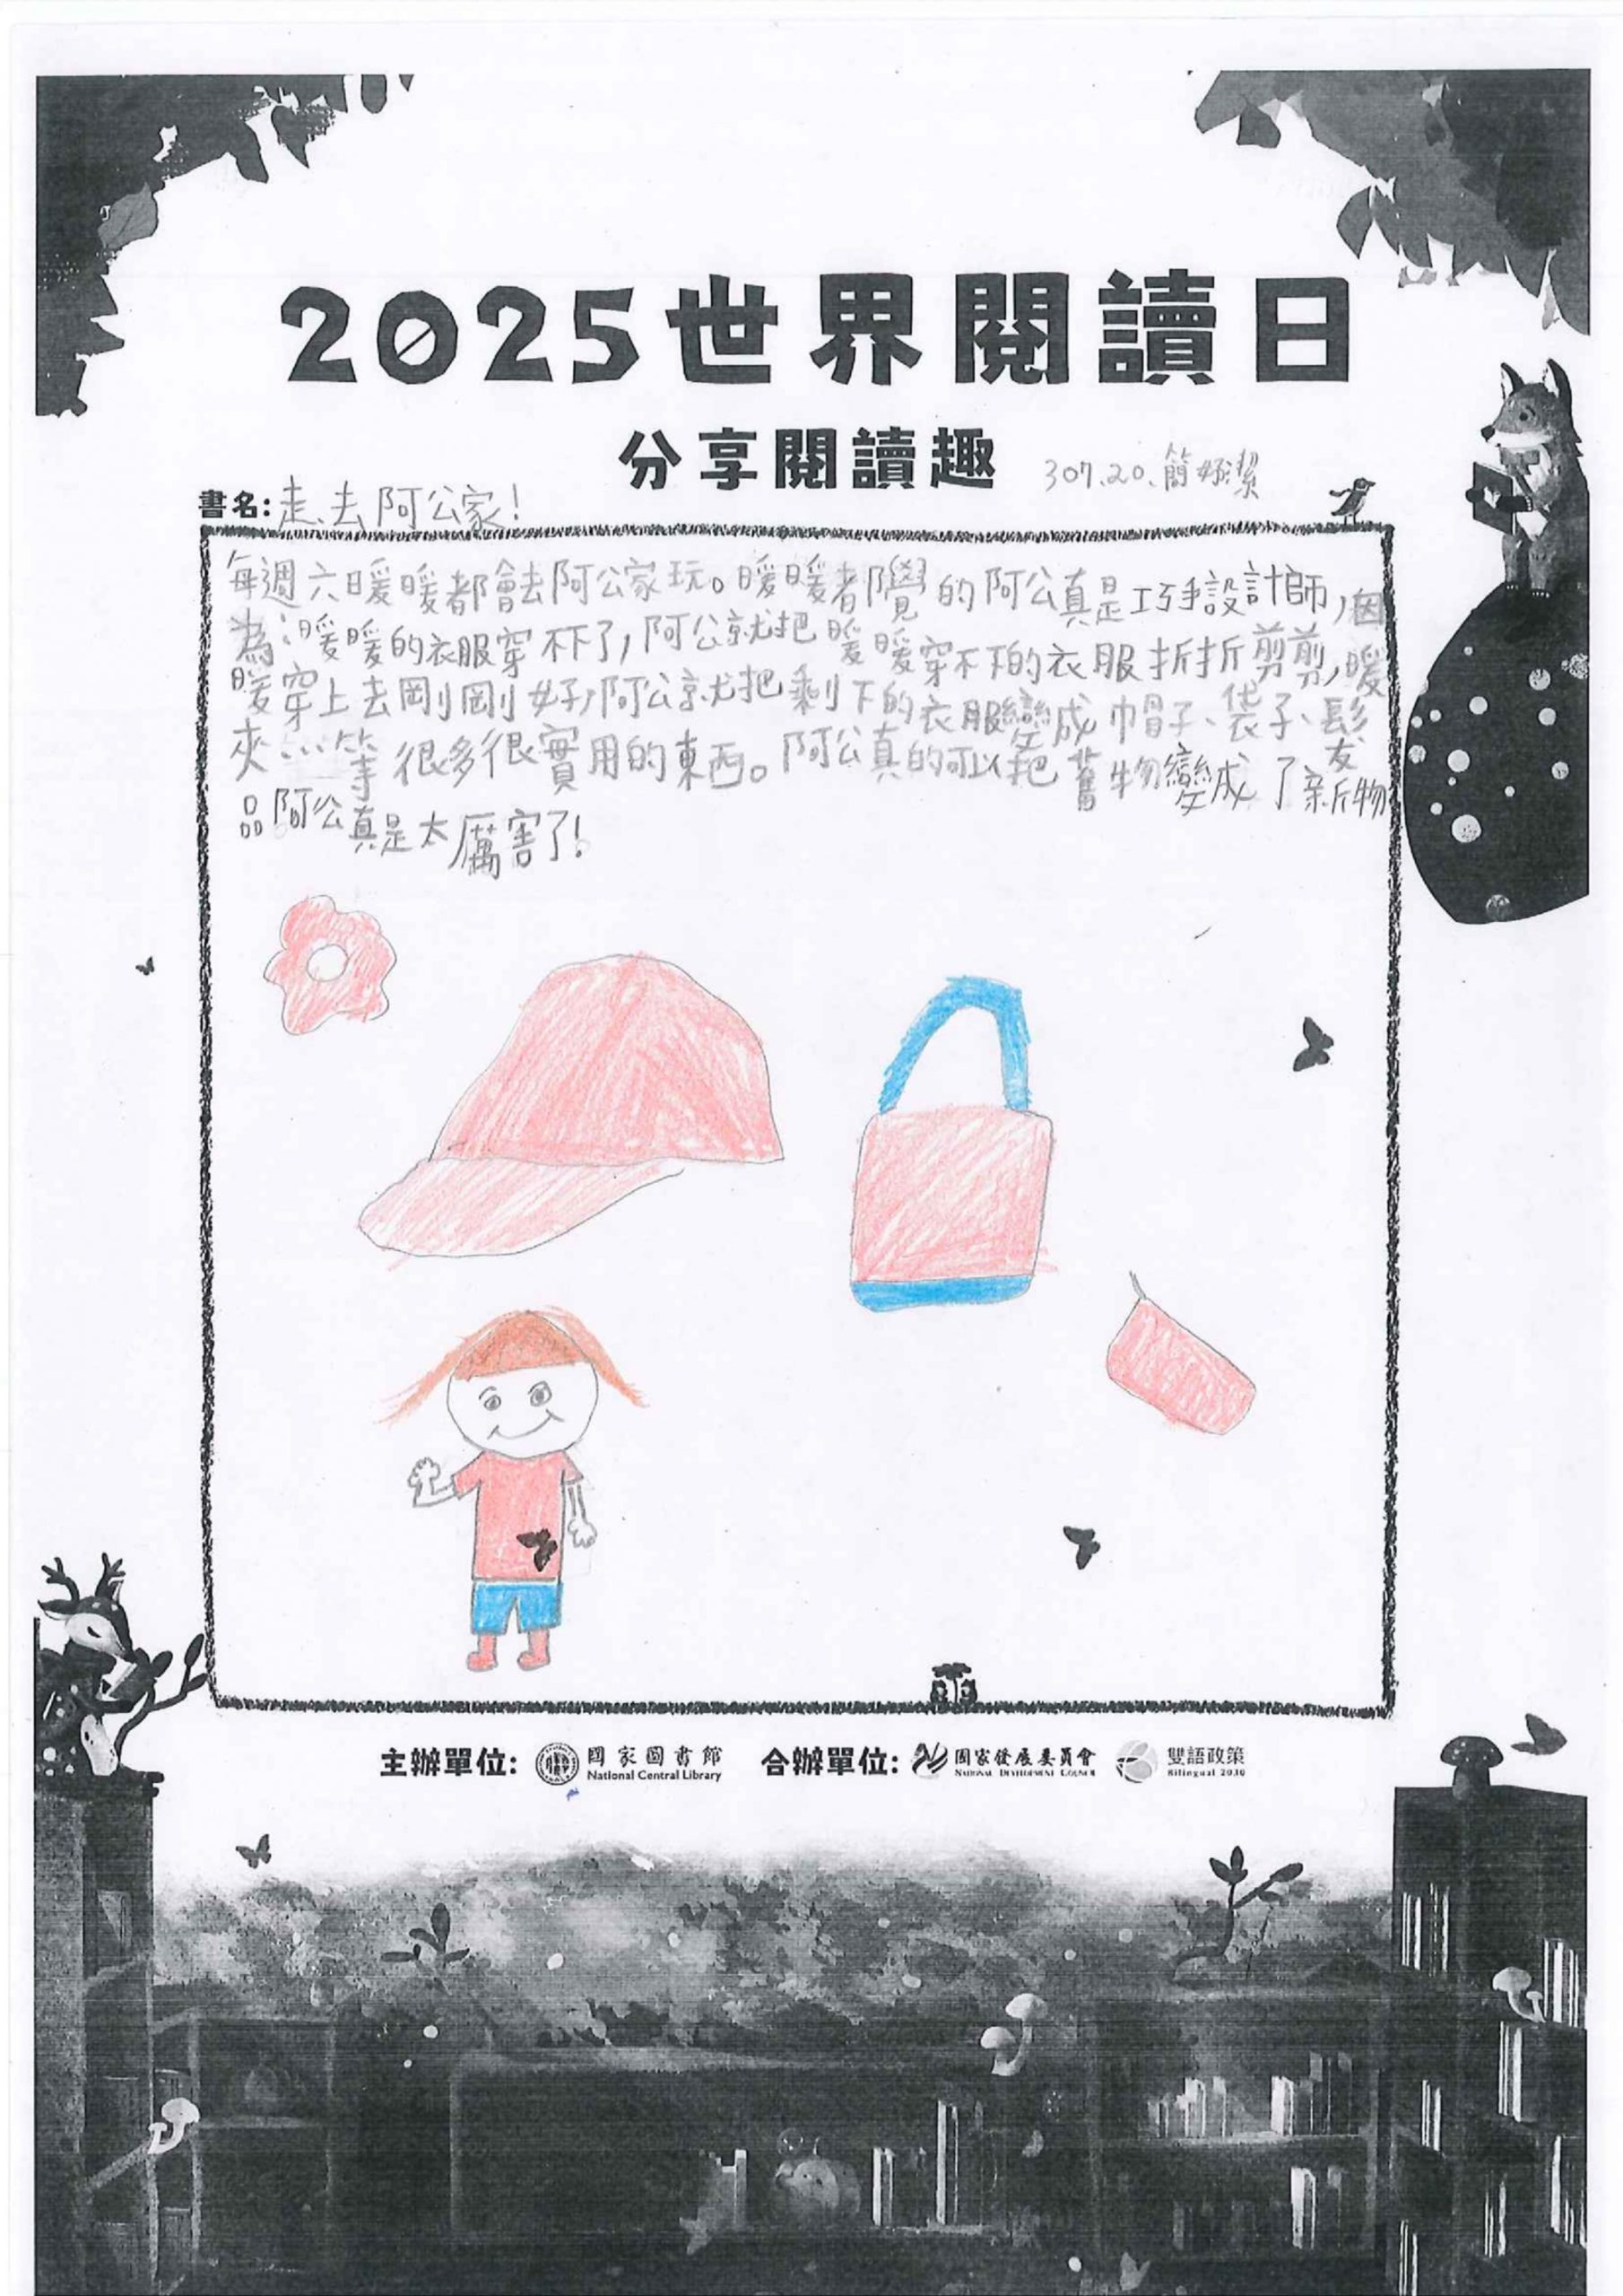 2025世界閱讀日
分享閱讀趣
307.20.簡妤潔
書名:走去阿公家!
每週六暖暖都會去阿公家玩。暖暖都覺的阿公真是巧手設計師,因
為暖暖的衣服穿不下了,阿公就把暖暖穿不下的衣服折折剪剪,暖
暖穿上去剛剛好,阿公就把剩下的衣服變成帽子、袋子、髮
夾⋯等很多很實用的東西。阿公真的可以把舊物變成了新物
品阿公真是太厲害了!
主辦單位: 國家圖書館 合辦單位: 國家發展委員會 雙語政策
National Central Library NATIONAL DEVELOPMENT COUNCIL Bilingual 2030